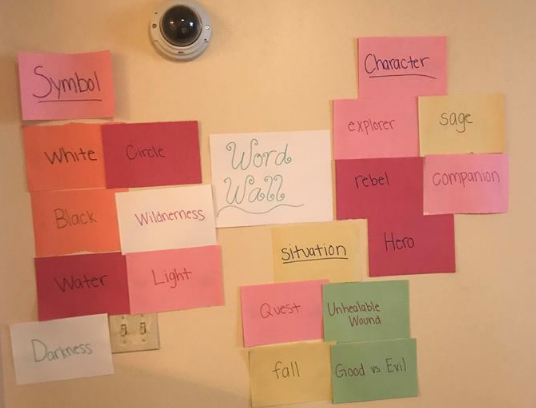 Symbol
White
Circle
Black
Wilderness
Water
Light
Darkness
Word
Wall
Character
explorer
sage
rebel
Companion
Hero
situation
Quest
Unhealable
Wound
fall
Good vs Evil